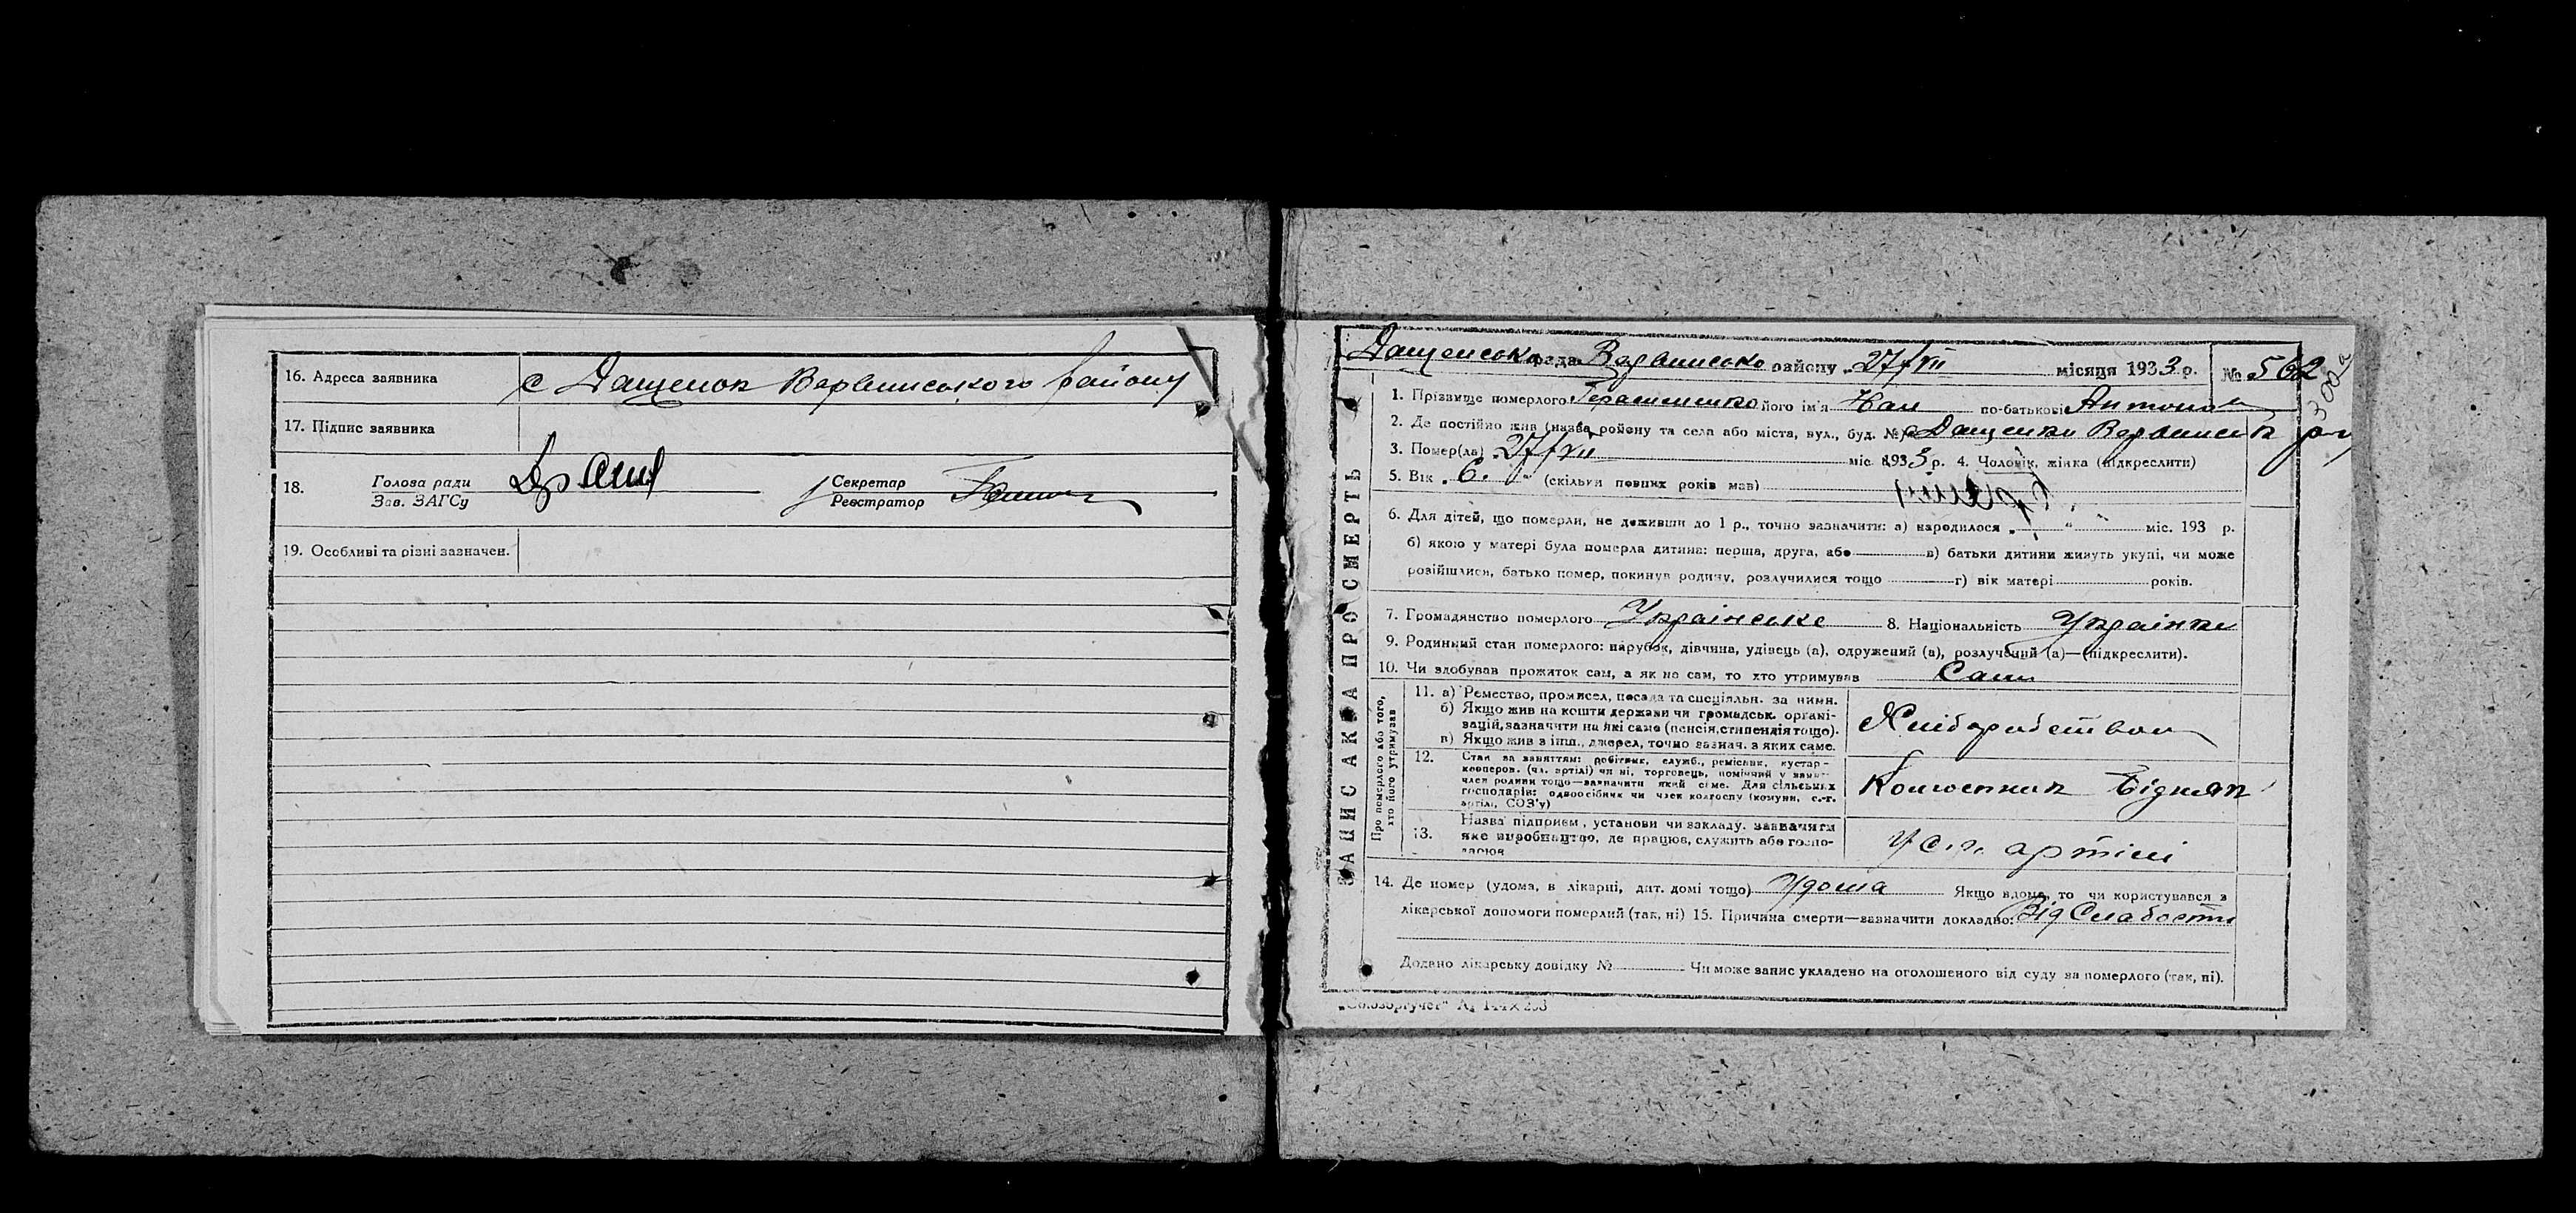 16. Адреса заявника с Дащенок Варвинського району
17. Підпис заявника
18. Голова ради
Зав. ЗАГСу
Секретар
Реєстратор
19. Особливі та різні зазначен.
ЗАПИС АКТА ПРО СМЕРТЬ
Дащенсько рада Варвинсько району 27/VII місяця 1933 р. № 562
300
1. Прізвище померлого Герасименко його ім'я по-батькові Антонов
2. Де постійно жив (назва району та села або міста, вул., буд. №) с Дащенки Варвинськ р-ну
3. Помер(ла) 27/VII міс. 1933 р. 4. Чоловік, жінка (підкреслити)
5. Вік 6. (скільки повних років мав)
6. Для дітей, що померли, не доживши до 1 р., точно зазначити: а) народилося „ “ міс. 193 р.
б) якою у матері була померла дитина: перша, друга, або в) батьки дитини живуть укупі, чи може
розійшлися, батько помер, покинув родину, розлучилися тощо г) вік матері років.
7. Громадянство померлого Українське 8. Національність Українка
9. Родинний стан померлого: парубок, дівчина, удівець (а), одружений (а), розлучений (а)—(підкреслити).
10. Чи здобував прожиток сам, а як не сам, то хто утримував Сам
Про померлого або того, хто його утримував
11. а) Ремество, промисел, посада та спеціяльн. за ними.
б) Якщо жив на кошти держави чи громадськ. органі-
зацій, зазначити на які саме (пенсія, стипендія тощо).
в) Якщо жив з інш., джерел, точно зазнач. з яких саме.
Хліборобством
12. Стан за заняттям: робітник, служб., ремісник, кустар-
кооперов. (чл. артілі) чи ні, торговець, помічний у занят-
член родини тощо—зазначити який саме. Для сільських
господарів: одноосібник чи член колгоспу (комуни, с.-г.
артілі, СОЗ'у)
Колгоспник Бідняк
13. Назва підприєм., установи чи закладу, зазначити
яке виробництво, де працює, служить або госпо-
дарює
У с.г. артілі
14. Де помер (удома, в лікарні, дит. домі тощо) Удома Якщо вдома, то чи користувався з
лікарської допомоги померлий (так, ні) 15. Причина смерти—зазначити докладно: Від Слабости
Додано лікарську довідку № Чи може запис укладено на оголошеного від суду за померлого (так, ні).
„Союзоргучет“ А₅ 144×203